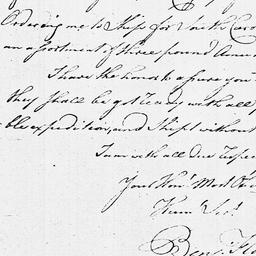 Ordering me to Ship for South Caro
an assortment of three pound Amm
I have the honor to assure you
they shall be got ready with all
ble expedition, and Shipt without
I am with all due respe
Your Hon.rs Most Ob
Hum Ser.t
Benj. Fl